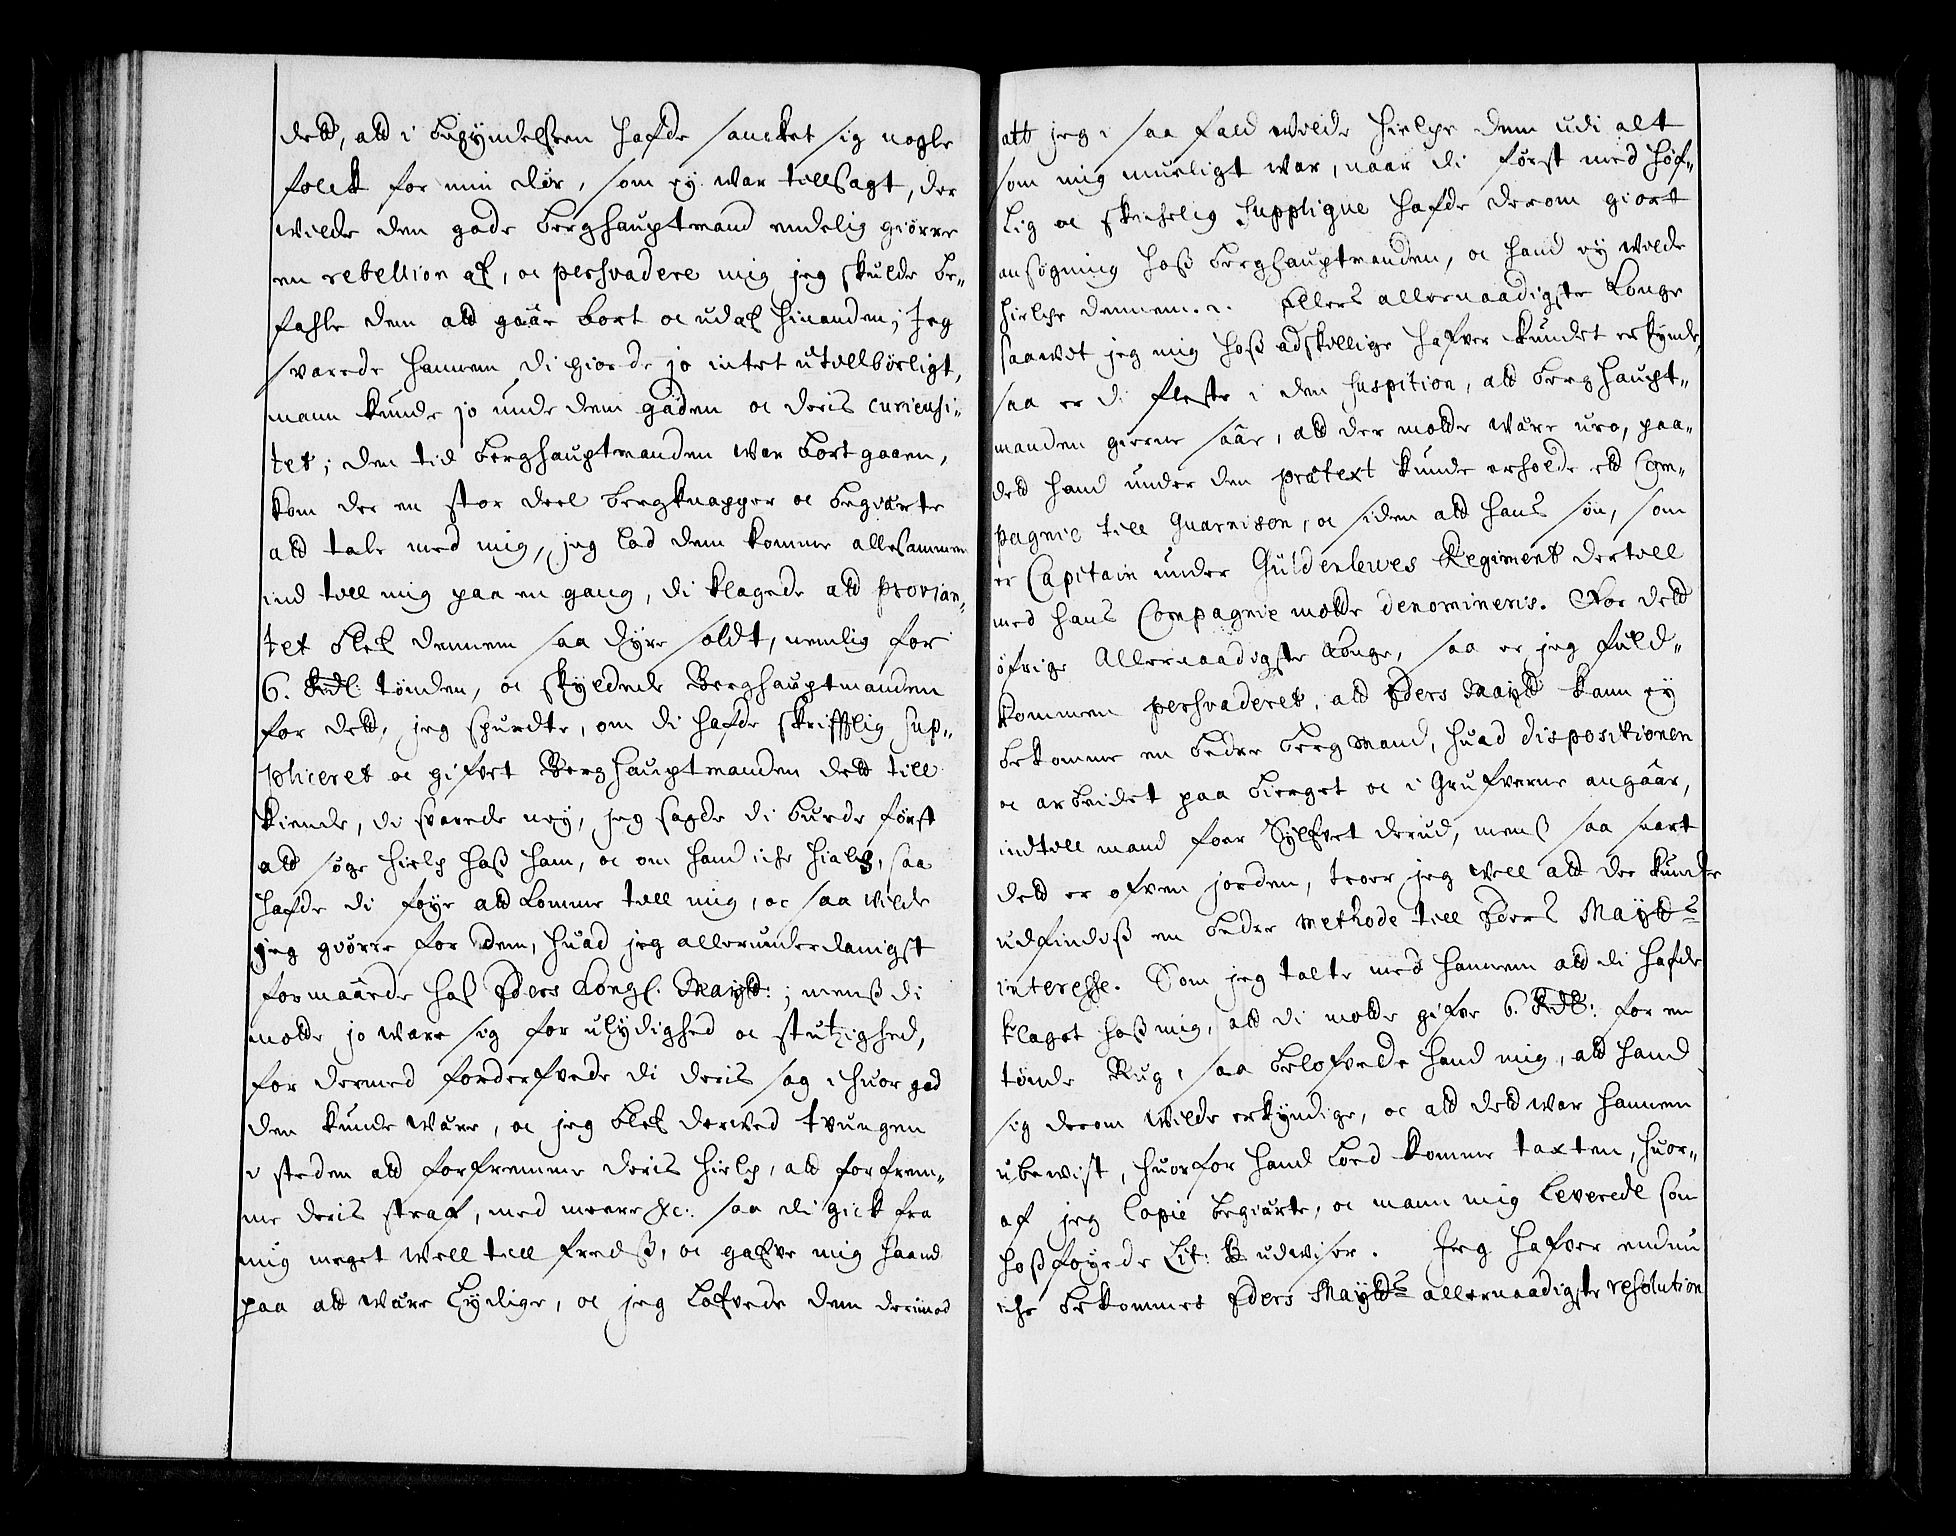 dett, att i begyndelsen hafde sancket sig nogle
folck for min dör, som ey war tillsagt, der
wilde den gode berghauptmand endelig giörre
en rebellion af, oc persvadere mig jeg skulde be-
fahle dem att gaae bort oc udaf hinanden; Jeg
svarede hannem di giorde jo intet utillbörligt,
mann kunde jo unde dem gaden oc deris curiensi-
tet; den tid berghauptmanden war bortgaaen,
kom der en stor deel bergknapper oc begiärte
att tale med mig, jeg lod dem komme allesammen
ind till mig paa en gang, di klagede att provian-
tet blef dennem saa dyre soldt, nemlig for
6. Rdl. tönden, oc skyldede Berghauptmanden
for dett, jeg spurdte, om di hafde skrifftlig sup-
pliceret oc gifvet Berghauptmanden dett till
kiende, di svarede ney, jeg sagde di burde först
att söge hielp hoß ham, oc om hand iche hialp, saa
hafde di föye att komme till mig, oc saa wilde
jeg giörre for dem, huad jeg allerunderdanigst
formaaede hoß Eders Kongl. Mayst: ; menß di
motte jo ware sig for ulydighed oc stutzighed,
for dermed forderfvede di deris sag ihuor god
den kunde wäre, oc jeg blef derved tvungen
i steden att forfremme deris hielp, att forfrem-
me deris straf, med meere &c: saa di gick fra
mig meget well till fredß, oc gafve mig haand
paa att wäre Lydige, oc jeg lofvede dem derimod
att jeg i saa fald wilde hielpe dem udi alt
som mig mueligt war, naar di först med höf-
lig oc skichelig supplique hafde derom giort
ansögning hoß berghauptmanden, oc hand ey wilde
hielpe dennem. Ellers allernaadigste Konge
saawit jeg mig hoß adskillige hafver kundet erkynde,
saa er di fleste i den suspition, att berghaupt-
manden gierne saae, att der motte wäre uro, paa-
dett hand under den prætext kunde erholde ett Com-
pagnie till Guarnison, oc siden att hans sön, som
er Capitain under Güldenlewes Regiment dertill
med hans Compagnie motte denomineris. For dett
öfrige Allernaadigste Konge, saa er jeg fuld-
kommen persvaderet, att Eders Mayst kann ey
bekomme en bedre bergmand, huad dispositionen
oc arbeidet paa bierget oc i Grufverne angaar,
indtill mand faar Sylfvet derud, menß saa snart
dett er ofven jorden, troer jeg well att der kunde
udfindeß en bedre methode till Eders Maysts
interesse. Som jeg talte med hannem att di hafde
klaget hoß mig, att di motte gifve 6. Rdl: for en
tönde Rug, saa belofvede hand mig, att hand
sig derom wilde erkyndige, oc att dett war hannem
ubewist, huorfor hand loed komme taxten, huor-
af jeg Copie begiärte, oc mann mig leverede som
hoßföyede Lit: B udwiser. Jeg hafver endnu
iche bekommet Eders Maysts allernaadigste resolution